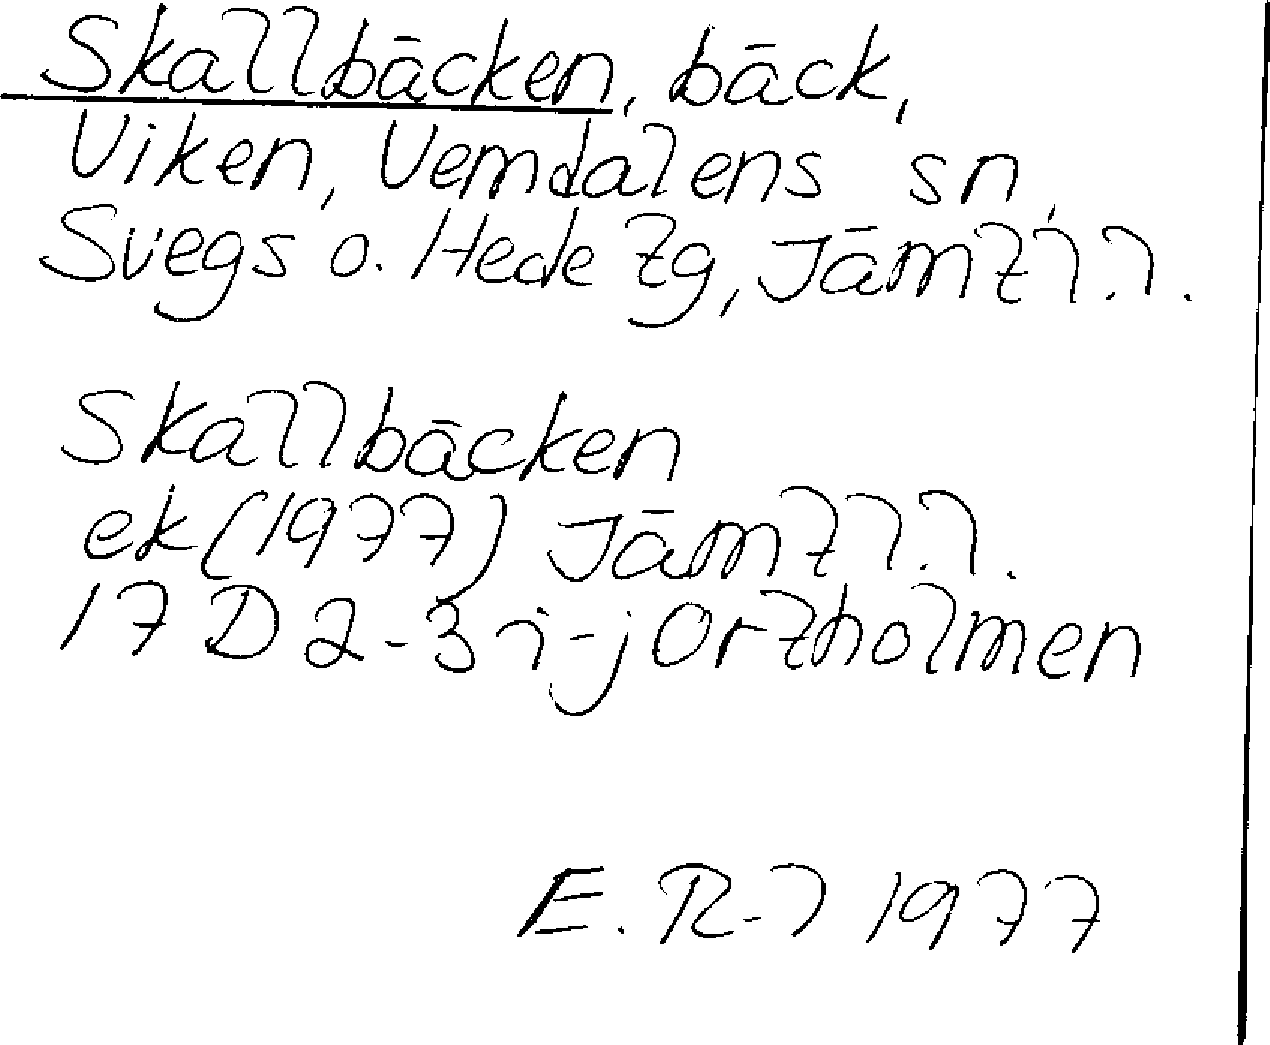 Skallbäcken, bäck,
Viken, Vemdalens sn,
Svegs o. Hede tg, Jämtl.l.
Skallbäcken
ek (1977) Jämtl.l.
17 D 2-3 i-j Ortholmen
E. R-l 1977